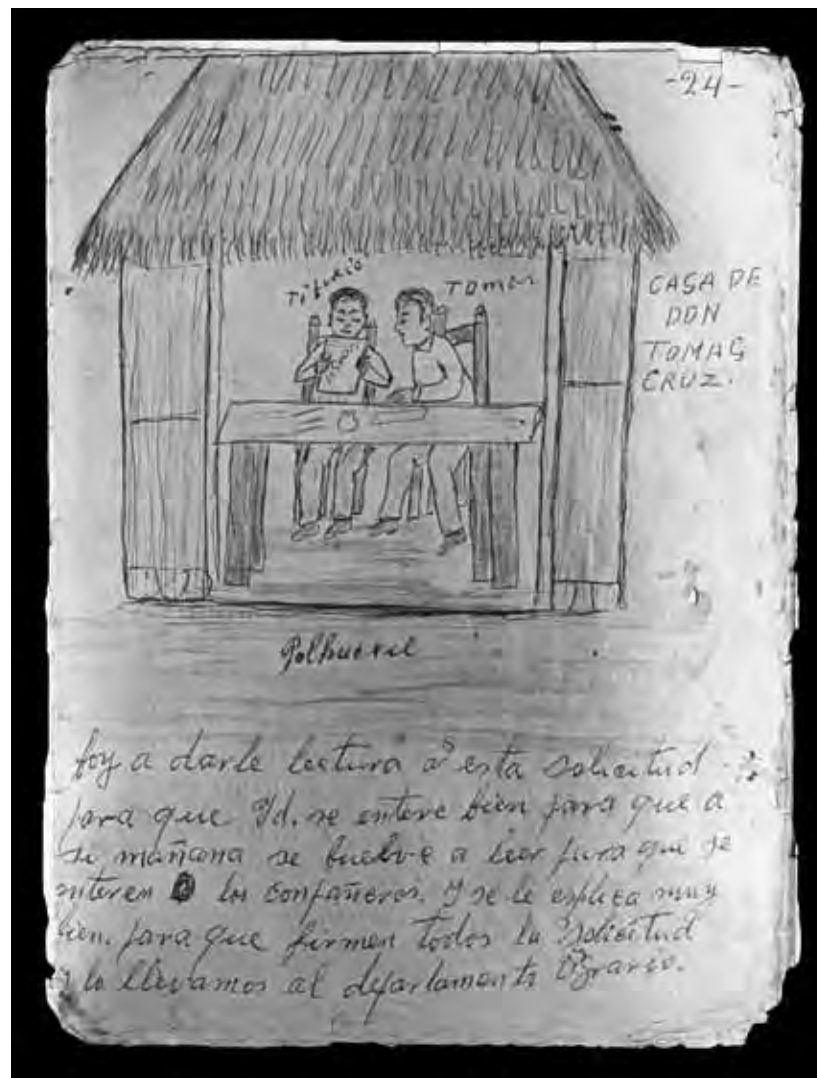 -24-
Tiburcio
Tomas
CASA DE
DON
TOMAS
CRUZ.
foy a darle lectura a esta solicitud
para que Ud. se entere bien para que a
si mañana se buelve a leer para que se
enteren los conpañeros. Y se le esplica muy
bien. para que firmen todos la solicitud
y lo llevamos al departamento Agrario.